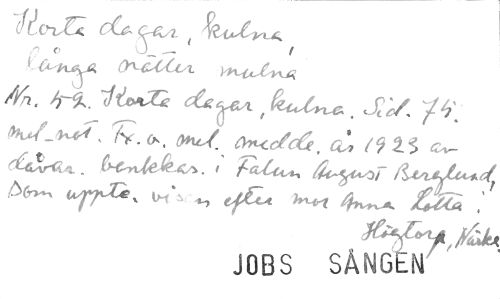 Korta dagar, kulna,
långa nätter mulna
Nr. 52. Korta dagar, kulna. Sid. 75.
mel-not. Tx. o. mel. medde. år 1923 av
dåvar. bankkas. i Falun August Berglund,
som uppte. visan efter mor Anna Lotta.
Högtorp, Närke.
JOBS SÅNGEN